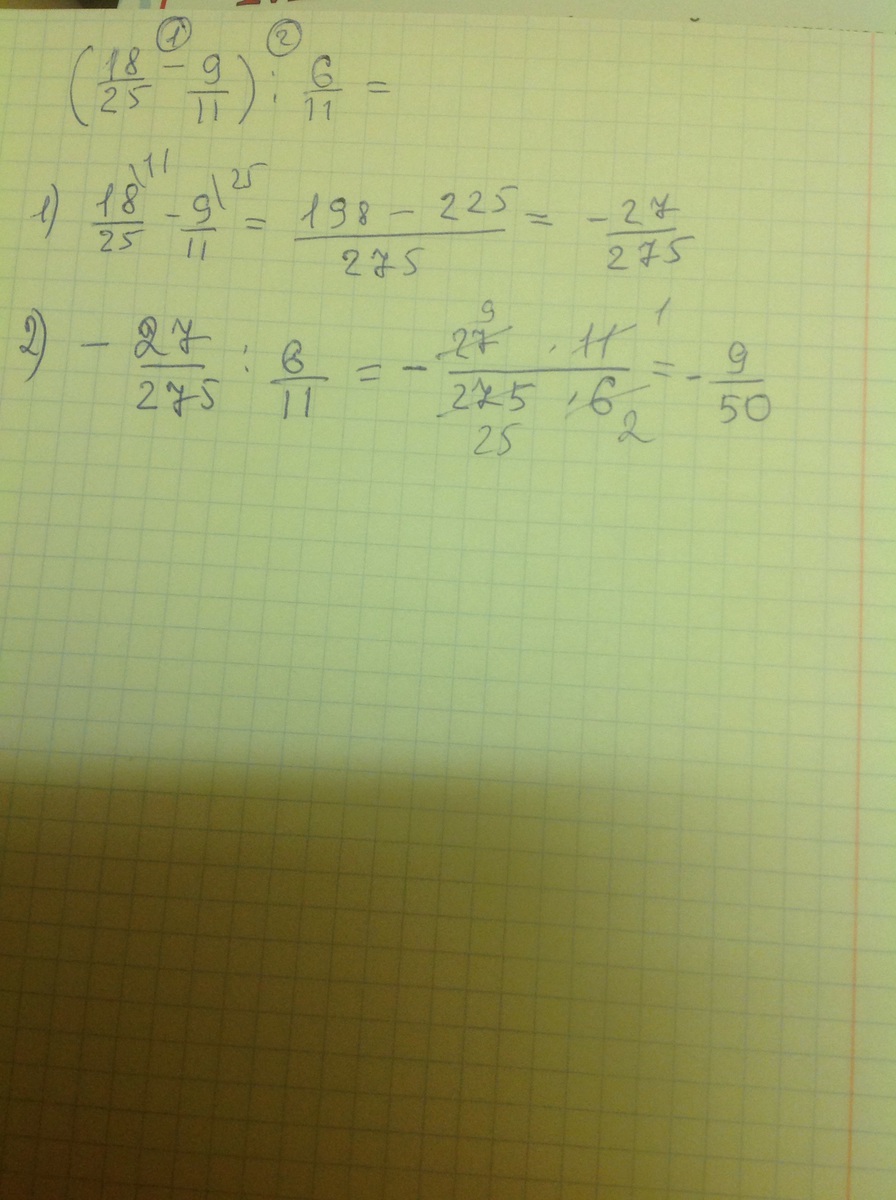 (18/25 ① - 9/11) ② : 6/11 =
1) 18\11/25 - 9\25/11 = 198 - 225/275 = - 27/275
2) - 27/275 : 6/11 = - 27 9 · 11 1/275 25 · 6 2 = - 9/50